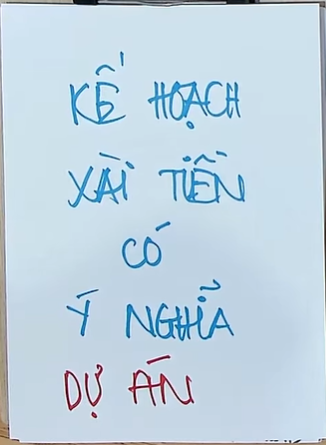 KẾ HOẠCH
XÀI TIỀN
CÓ
Ý NGHĨA
DỰ ÁN